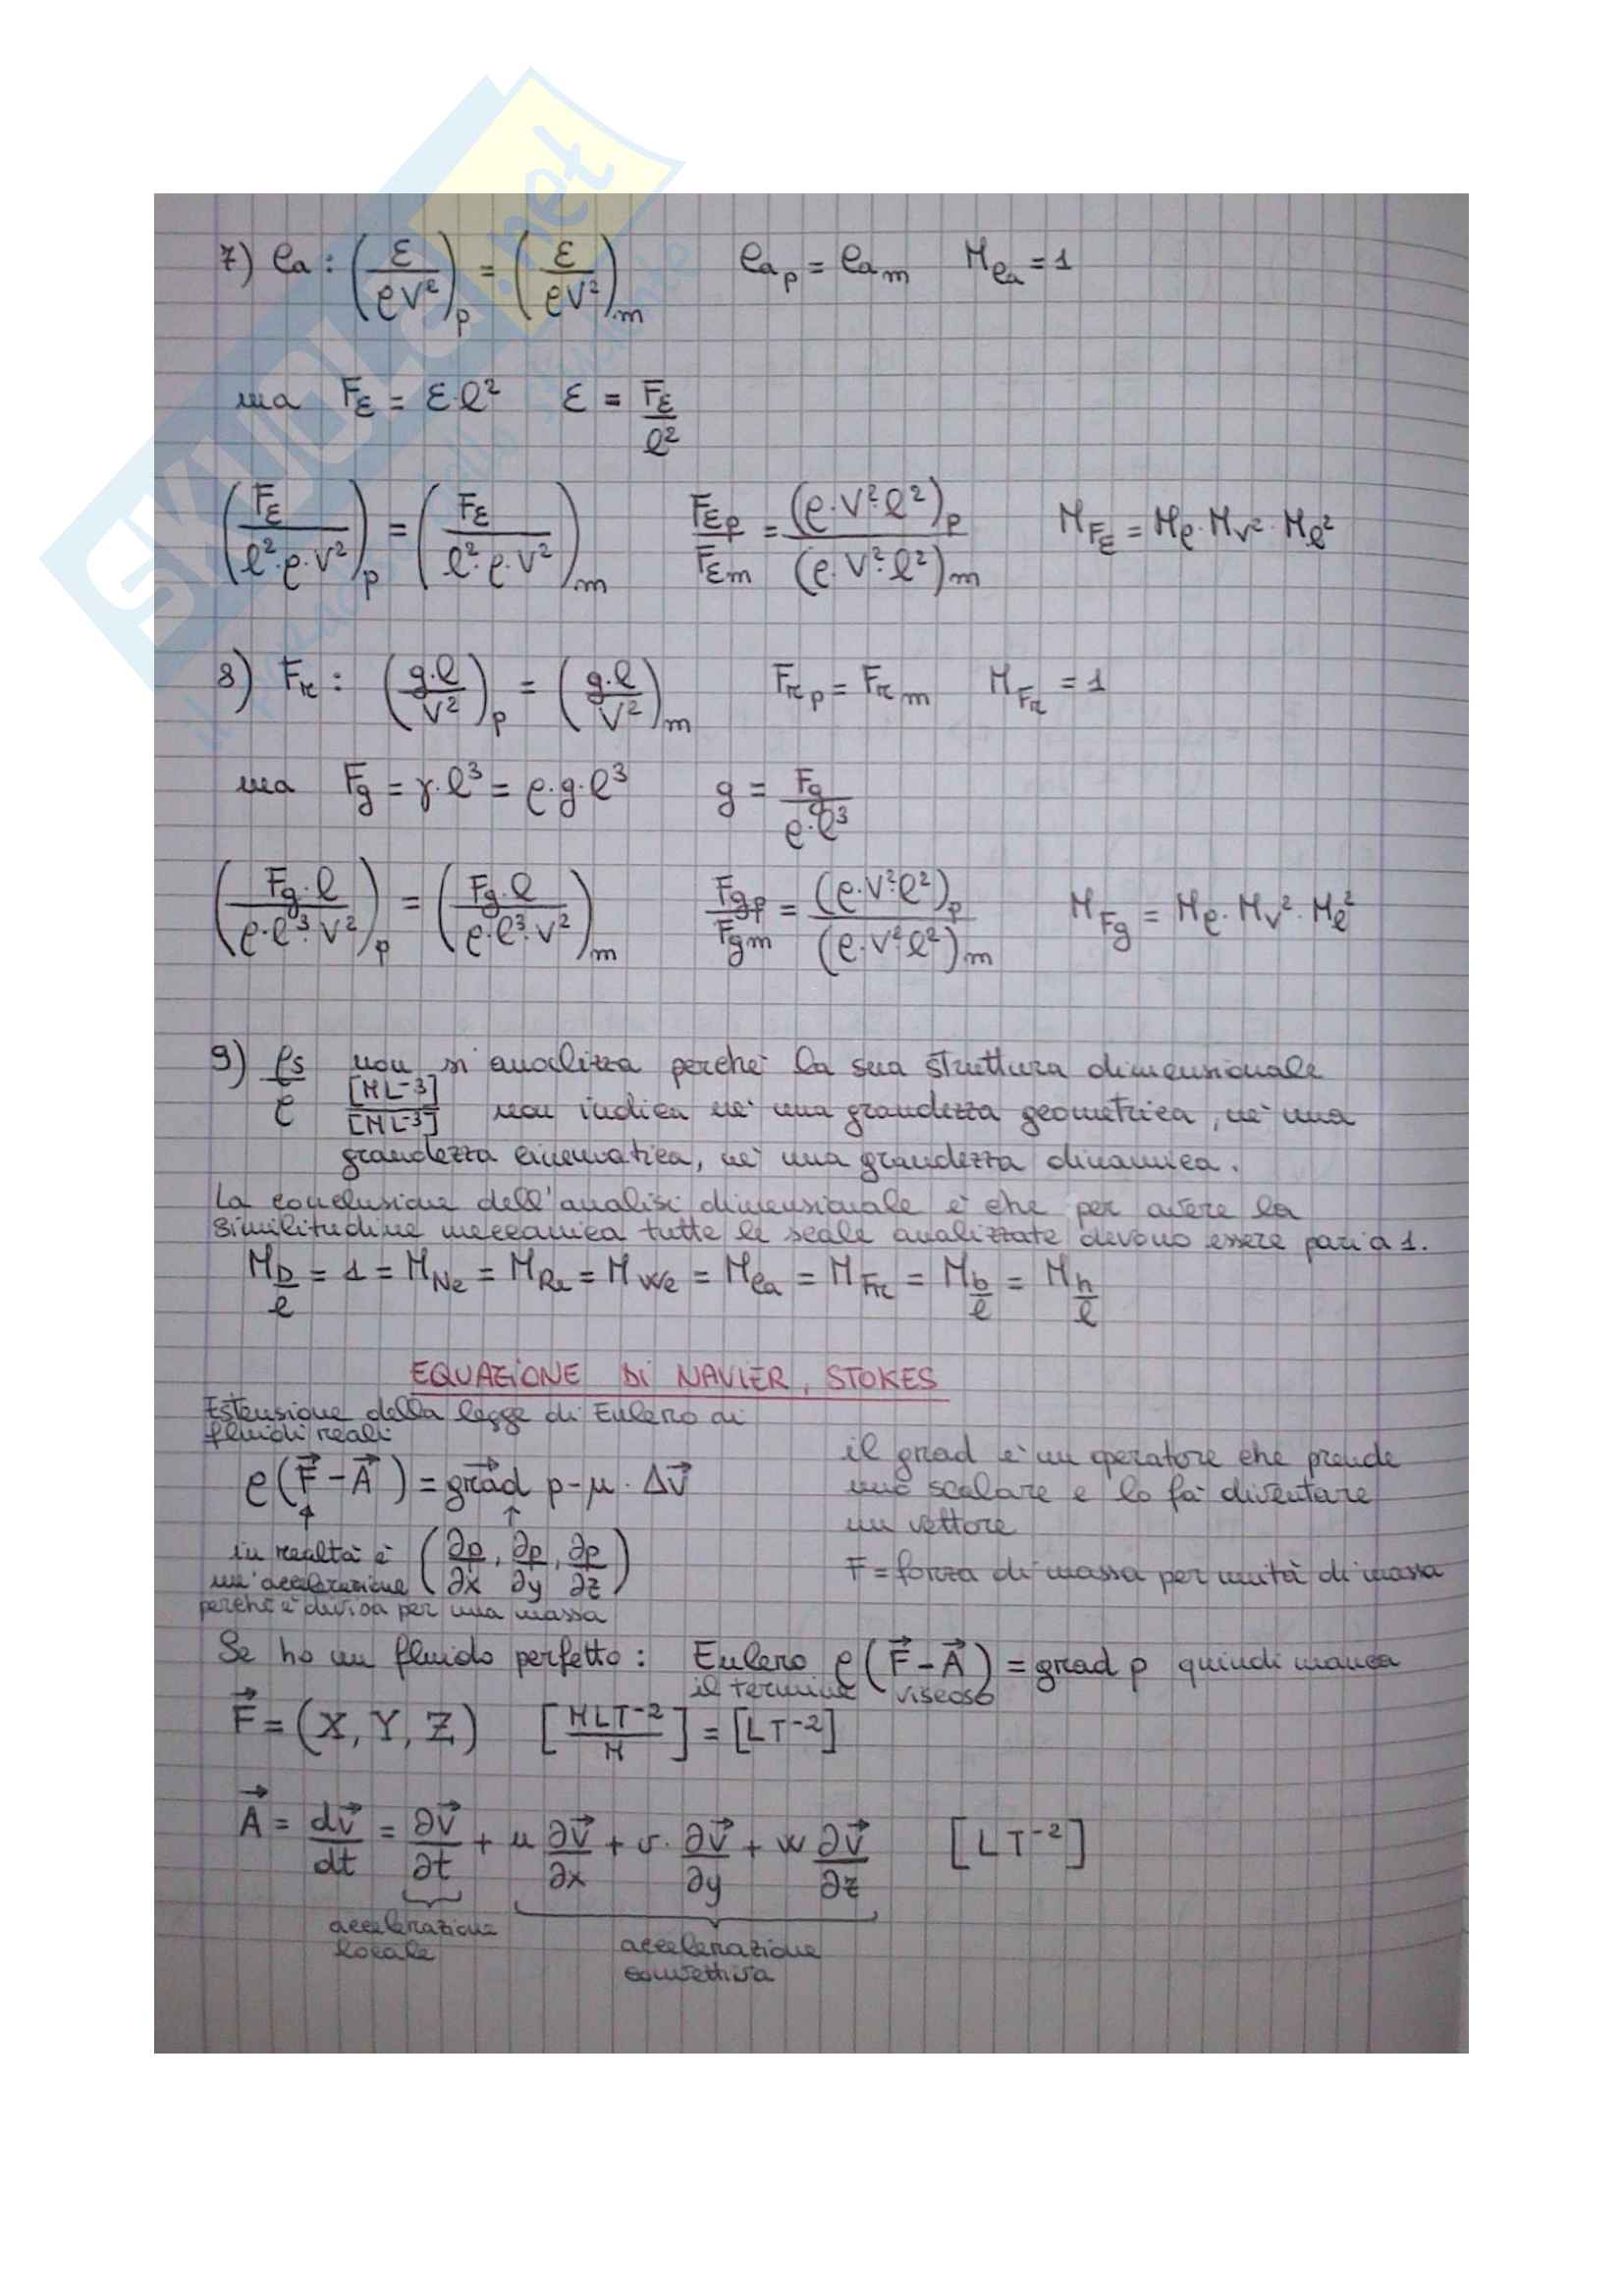 SKUOLA.net
7) Ca : (ε / ρV²)p = (ε / ρV²)m   Cap = Cam   MCa = 1
ma   Fε = ε·l²   ε = Fε / l²
(Fε / l²·ρ·V²)p = (Fε / l²·ρ·V²)m   Fεp / Fεm = (ρ·V²·l²)p / (ρ·V²·l²)m   MFε = Mρ·MV²·Ml²
8) Fr : (g·l / V²)p = (g·l / V²)m   Frp = Frm   MFr = 1
ma   Fg = γ·l³ = ρ·g·l³   g = Fg / ρ·l³
(Fg·l / ρ·l³·V²)p = (Fg·l / ρ·l³·V²)m   Fgp / Fgm = (ρ·V²·l²)p / (ρ·V²·l²)m   MFg = Mρ·MV²·Ml²
9) ρs / ρ   non si analizza perchè la sua struttura dimensionale
[ML⁻³] / [ML⁻³]   non indica nè una grandezza geometrica, nè una
grandezza cinematica, nè una grandezza dinamica.
La conclusione dell'analisi dimensionale è che per avere la
similitudine meccanica tutte le scale analizzate devono essere pari a 1.
MD/l = 1 = MNe = MRe = MWe = MCa = MFr = Mb/l = Mh/l
EQUAZIONE DI NAVIER, STOKES
Estensione della legge di Eulero ai
fluidi reali
il grad è un operatore che prende
uno scalare e lo fa diventare
un vettore
ρ(F⃗ - A⃗) = grad p - μ · ΔV⃗
in realtà è   (∂p/∂x, ∂p/∂y, ∂p/∂z)
un'accelerazione
perchè è divisa per una massa
F = forza di massa per unità di massa
Se ho un fluido perfetto : Eulero ρ(F⃗ - A⃗) = grad p quindi manca
il termine viscoso
F⃗ = (X, Y, Z)   [MLT⁻² / M] = [LT⁻²]
A⃗ = dv⃗/dt = ∂V⃗/∂t + u ∂V⃗/∂x + v · ∂V⃗/∂y + w ∂V⃗/∂z   [LT⁻²]
accelerazione
locale
accelerazione
convettiva